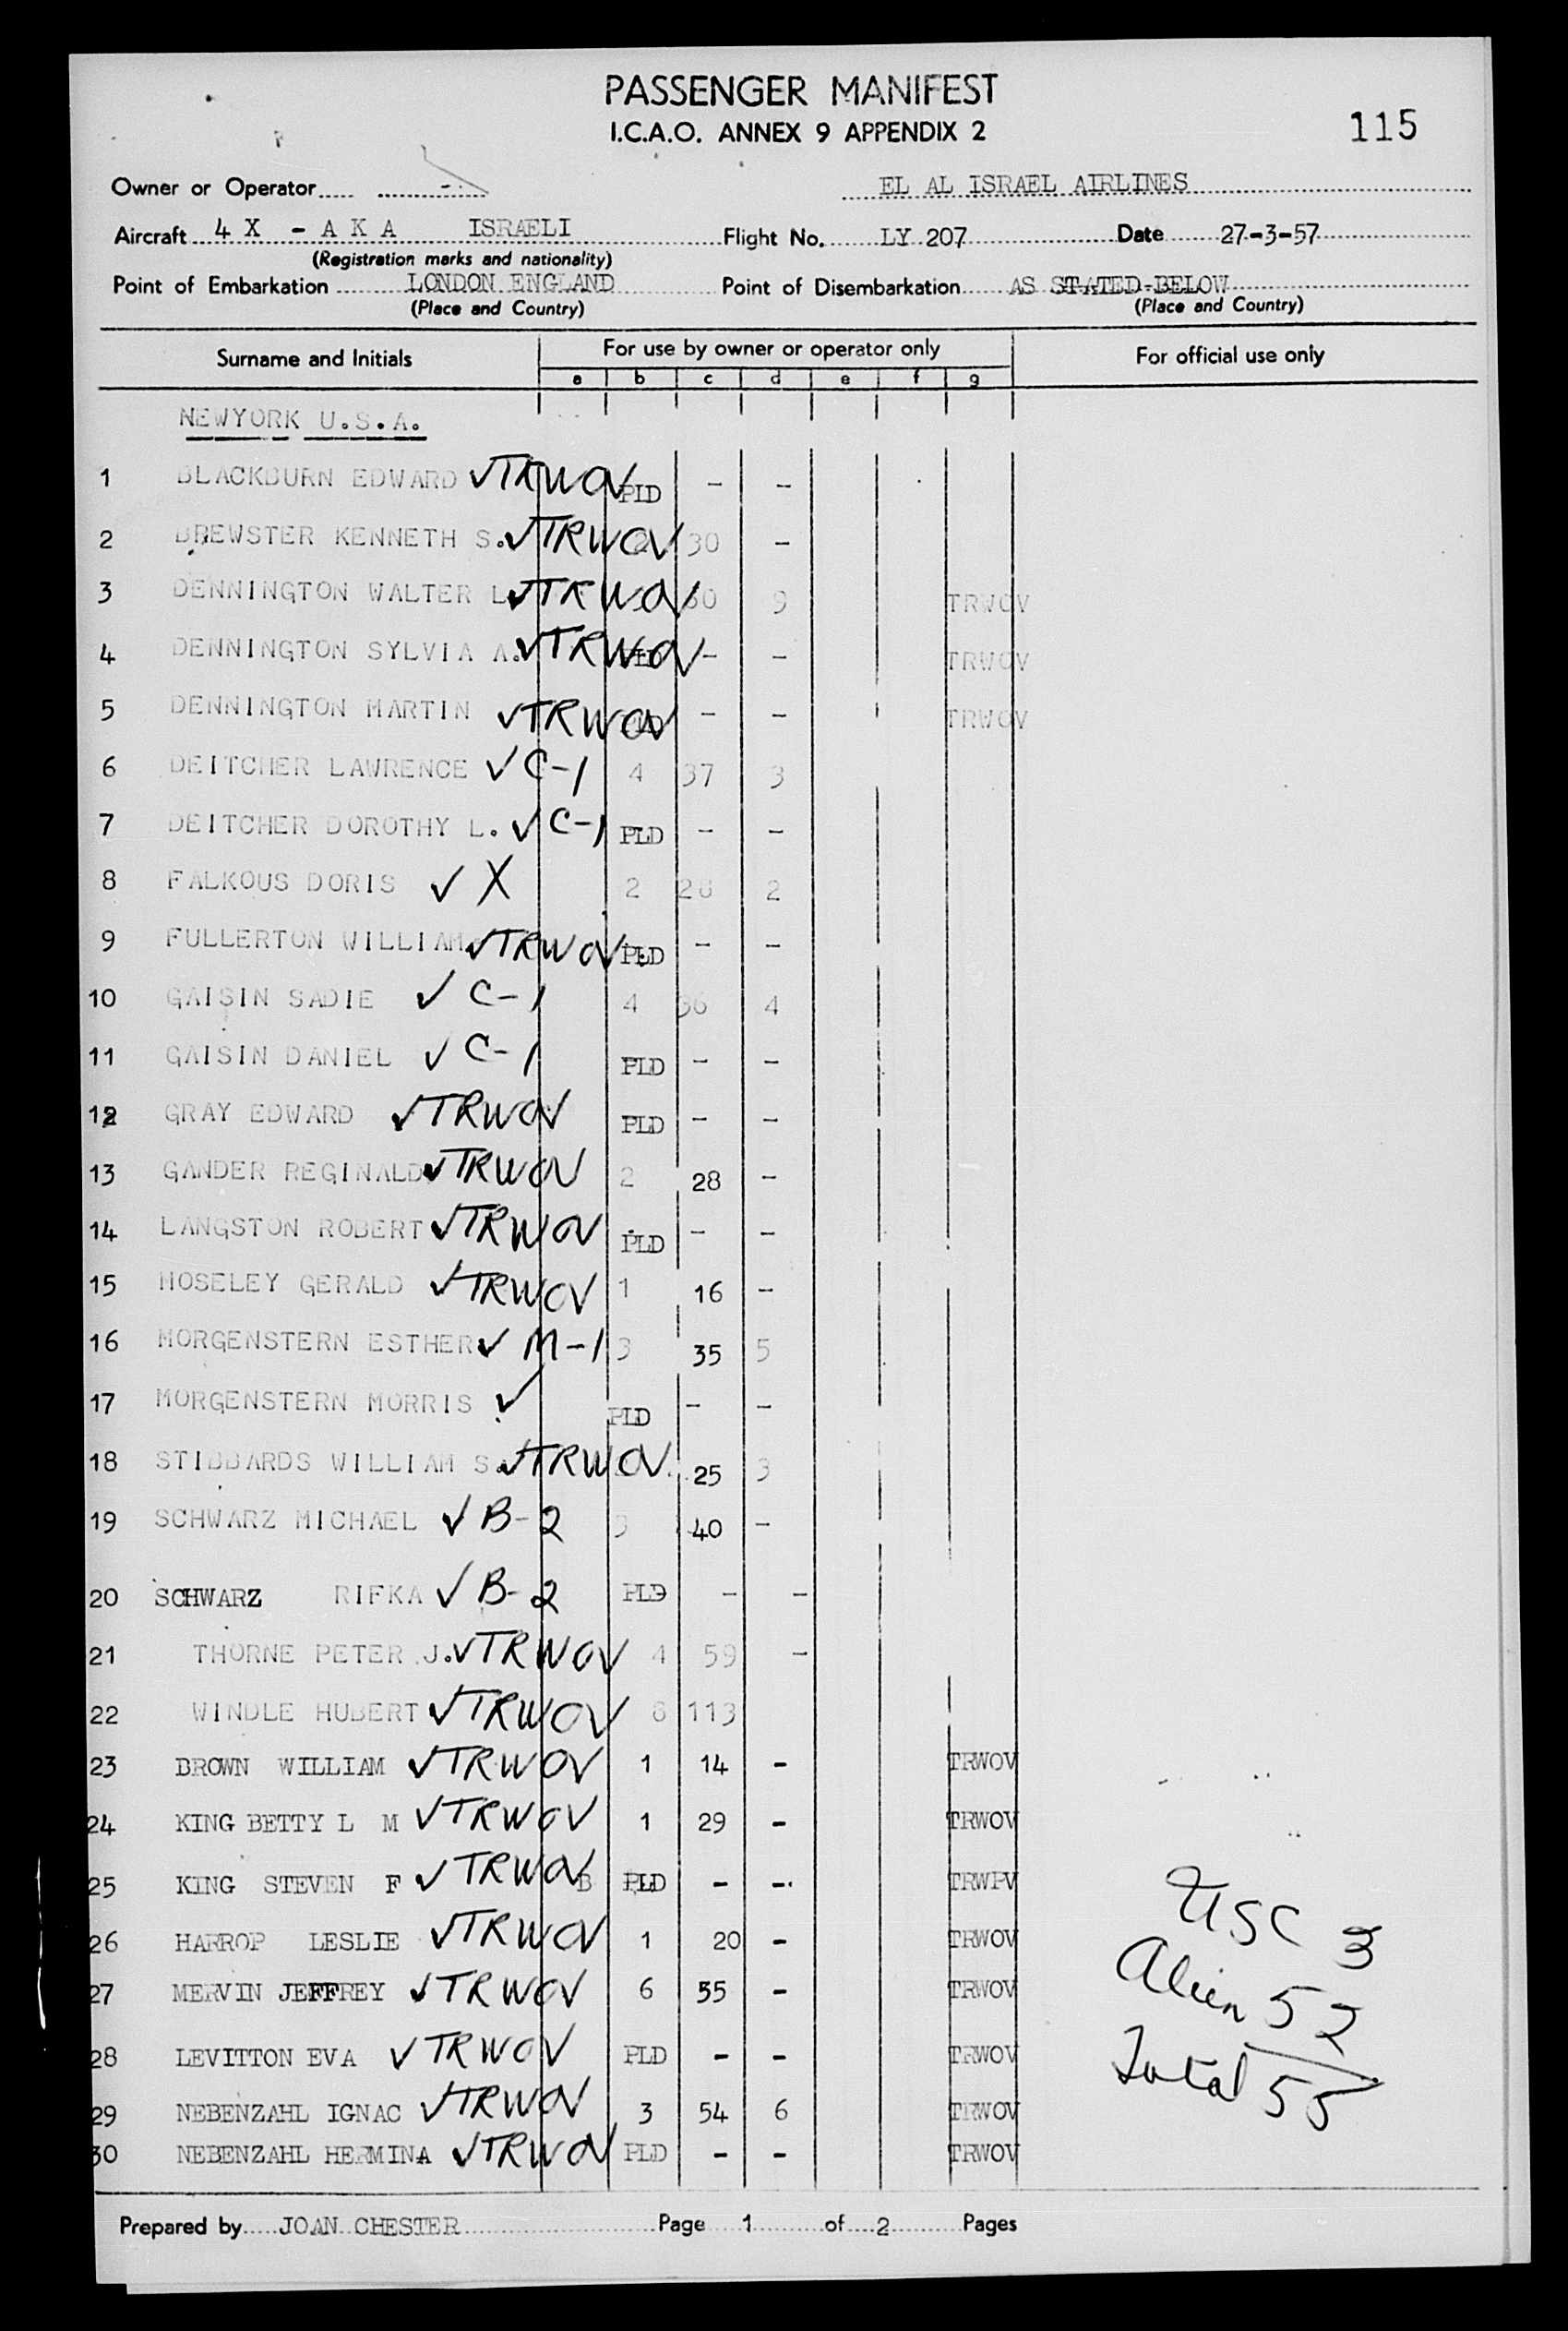 PASSENGER MANIFEST
I.C.A.O. ANNEX 9 APPENDIX 2
115
Owner or Operator EL AL ISRAEL AIRLINES
Aircraft 4 X - A K A ISRAELI Flight No. LY 207 Date 27-3-57
(Registration marks and nationality)
Point of Embarkation LONDON ENGLAND Point of Disembarkation AS STATED BELOW
(Place and Country) (Place and Country)
Surname and Initials For use by owner or operator only For official use only
a b c d e f g
NEWYORK U.S.A.
1 BLACKBURN EDWARD ✓TRWOV PLD - -
2 BREWSTER KENNETH S. ✓TRWOV 30 -
3 DENNINGTON WALTER L ✓TRWOV 30 9 TRWOV
4 DENNINGTON SYLVIA A. ✓TRWOV - - TRWOV
5 DENNINGTON MARTIN ✓TRWOV - - TRWOV
6 DEITCHER LAWRENCE ✓ C-1 4 37 3
7 DEITCHER DOROTHY L. ✓ C-1 PLD - -
8 FALKOUS DORIS ✓ X 2 28 2
9 FULLERTON WILLIAM ✓TRWOV PLD - -
10 GAISIN SADIE ✓ C-1 4 36 4
11 GAISIN DANIEL ✓ C-1 PLD - -
12 GRAY EDWARD ✓TRWOV PLD - -
13 GANDER REGINALD ✓TRWOV 2 28 -
14 LANGSTON ROBERT ✓TRWOV PLD - -
15 MOSELEY GERALD ✓TRWOV 1 16 -
16 MORGENSTERN ESTHER ✓ M-1 3 35 5
17 MORGENSTERN MORRIS ✓ PLD - -
18 STIBBARDS WILLIAM S. ✓TRWOV 25 3
19 SCHWARZ MICHAEL ✓ B-2 3 40 -
20 SCHWARZ RIFKA ✓ B-2 PLD - -
21 THORNE PETER J. ✓TRWOV 4 59 -
22 WINDLE HUBERT ✓TRWOV 6 113
23 BROWN WILLIAM ✓TRWOV 1 14 - TRWOV
24 KING BETTY L M ✓TRWOV 1 29 - TRWOV
25 KING STEVEN F ✓TRWOV B PLD - - TRWPV
26 HARROP LESLIE ✓TRWOV 1 20 - TRWOV
27 MERVIN JEFFREY ✓TRWOV 6 55 - TRWOV
28 LEVITTON EVA ✓TRWOV PLD - - TRWOV
29 NEBENZAHL IGNAC ✓TRWOV 3 54 6 TRWOV
30 NEBENZAHL HERMINA ✓TRWOV PLD - - TRWOV
USC 3
Alien 52
Total 55
Prepared by JOAN CHESTER Page 1 of 2 Pages